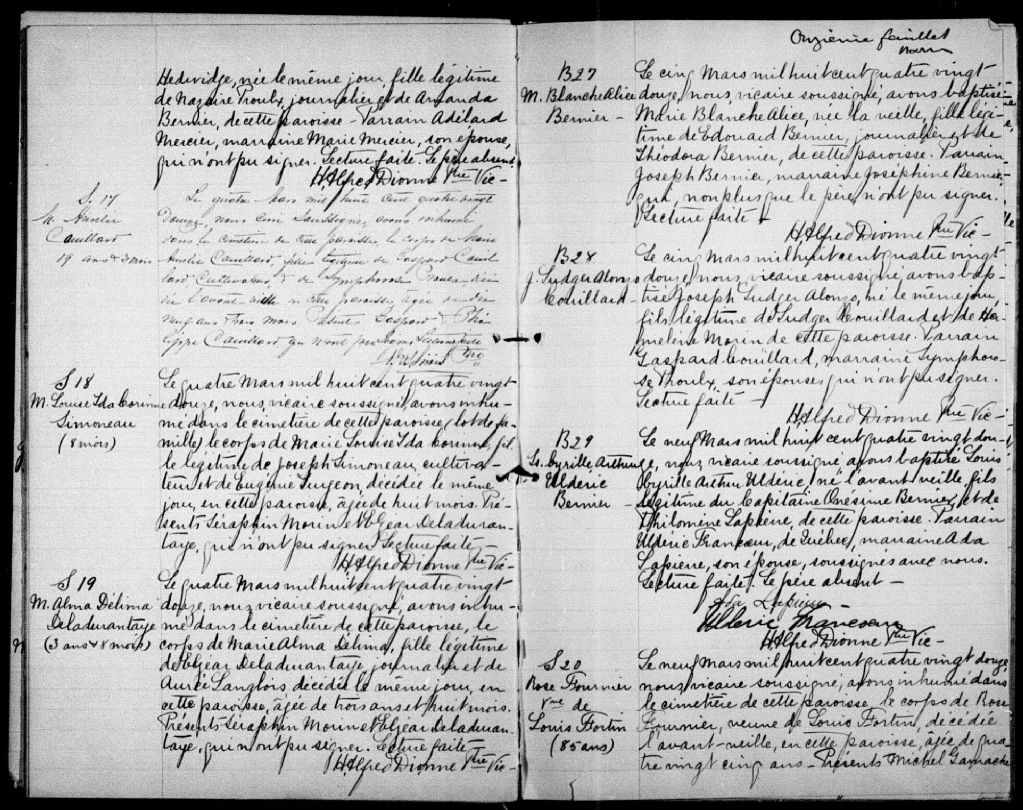 Hedwidge, née le même jour, fille légitime
de Nazaire Proulx, journalier et de Amanda
Bernier, de cette paroisse - Parrain Adélard
Mercier, marraine Marie Mercier, son épouse,
qui n'ont pu signer. Lecture faite. Le père absent
H. Alfred Dionne Ptre Vic -
S. 17
M. Aurélie
Couillard
19 ans & 3 mois
Le quatre Mars mil huit cent quatre vingt
douze, nous curé soussigné, avons inhumé
dans le cimetière de cette paroisse le corps de Marie
Aurélie Couillard, fille légitime de Gaspard Couil
lard Cultivateur, & de Symphorose Proulx, décé
dée l'avant-veille en cette paroisse, âgée de dix
neuf ans trois mois. Présents Gaspard & Phi
lippe Couillard qui n'ont pu signer. Lecture faite
Ptre
S 18
M. Louise Ida Corinne
Simoneau
(8 mois)
Le quatre Mars mil huit cent quatre vingt
douze, nous, vicaire soussigné, avons inhu-
mé dans le cimetière de cette paroisse (lot de fa
mille) le corps de Marie Louise Ida Corinne, fil
le légitime de Joseph Simoneau, cultiva-
teur et de Eugénie Turgeon, décédée le même
jour, en cette paroisse, âgée de huit mois. Pré-
sents Séraphin Morin et Elzéar Deladuran-
taye, qui n'ont pu signer. Lecture faite -
H. Alfred Dionne Ptre Vic -
S 19
M. Alma Délima
Deladurantaye
(3 ans & 8 mois)
Le quatre Mars mil huit cent quatre vingt
douze, nous, vicaire soussigné, avons inhu-
mé dans le cimetière de cette paroisse, le
corps de Marie Alma Délima, fille légitime
de Elzéar Deladurantaye, journalier et de
Aurée Langlois décédée le même jour, en
cette paroisse, âgée de trois ans et huit mois.
Présents Séraphin Morin et Elzéar Deladuran-
taye, qui n'ont pu signer. Lecture faite -
H. Alfred Dionne Ptre Vic -
Onzième feuillet
B 27
M. Blanche Alice
Bernier -
Le cinq Mars mil huit cent quatre vingt
douze, nous, vicaire soussigné, avons baptisé
Marie Blanche Alice, née la veille, fille légi-
time de Edouard Bernier, journalier et de
Théodora Bernier, de cette paroisse. Parrain
Joseph Bernier, marraine Joséphine Bernier
qui, non plus que le père, n'ont pu signer.
Lecture faite -
H. Alfred Dionne Ptre Vic -
B 28
J. Ludger Alonzo
Couillard
Le cinq Mars mil huit cent quatre vingt
douze, nous, vicaire soussigné, avons bap-
tisé Joseph Ludger Alonzo, né le même jour,
fils légitime de Ludger Couillard et de Her-
mélène Morin de cette paroisse. Parrain
Gaspard Couillard, marraine Sympho-
se Proulx, son épouse, qui n'ont pu signer.
Lecture faite -
H. Alfred Dionne Ptre Vic -
B 29
Ls. Cyrille Arthur
Uldéric
Bernier -
Le neuf Mars mil huit cent quatre vingt dou-
ze, nous, vicaire soussigné avons baptisé Louis
Cyrille Arthur Uldéric, né l'avant veille, fils
légitime du Capitaine Onésime Bernier, et de
Philomène Lapierre, de cette paroisse. Parrain
Uldéric Francoeur, de Québec, marraine Ada
Lapierre, son épouse, soussignés avec nous.
Lecture faite. Le père absent -
Ada Lapierre
Uldéric Francoeur
H. Alfred Dionne Ptre Vic -
S 20
Rose Fournier
Vve de
Louis Fortin
(85 ans)
Le neuf Mars mil huit cent quatre vingt douze
nous, vicaire soussigné, avons inhumé dans
le cimetière de cette paroisse, le corps de Rose
Fournier, veuve de Louis Fortin, décédée
l'avant-veille, en cette paroisse, âgée de qua-
tre vingt cinq ans - Présents Michel Gamache